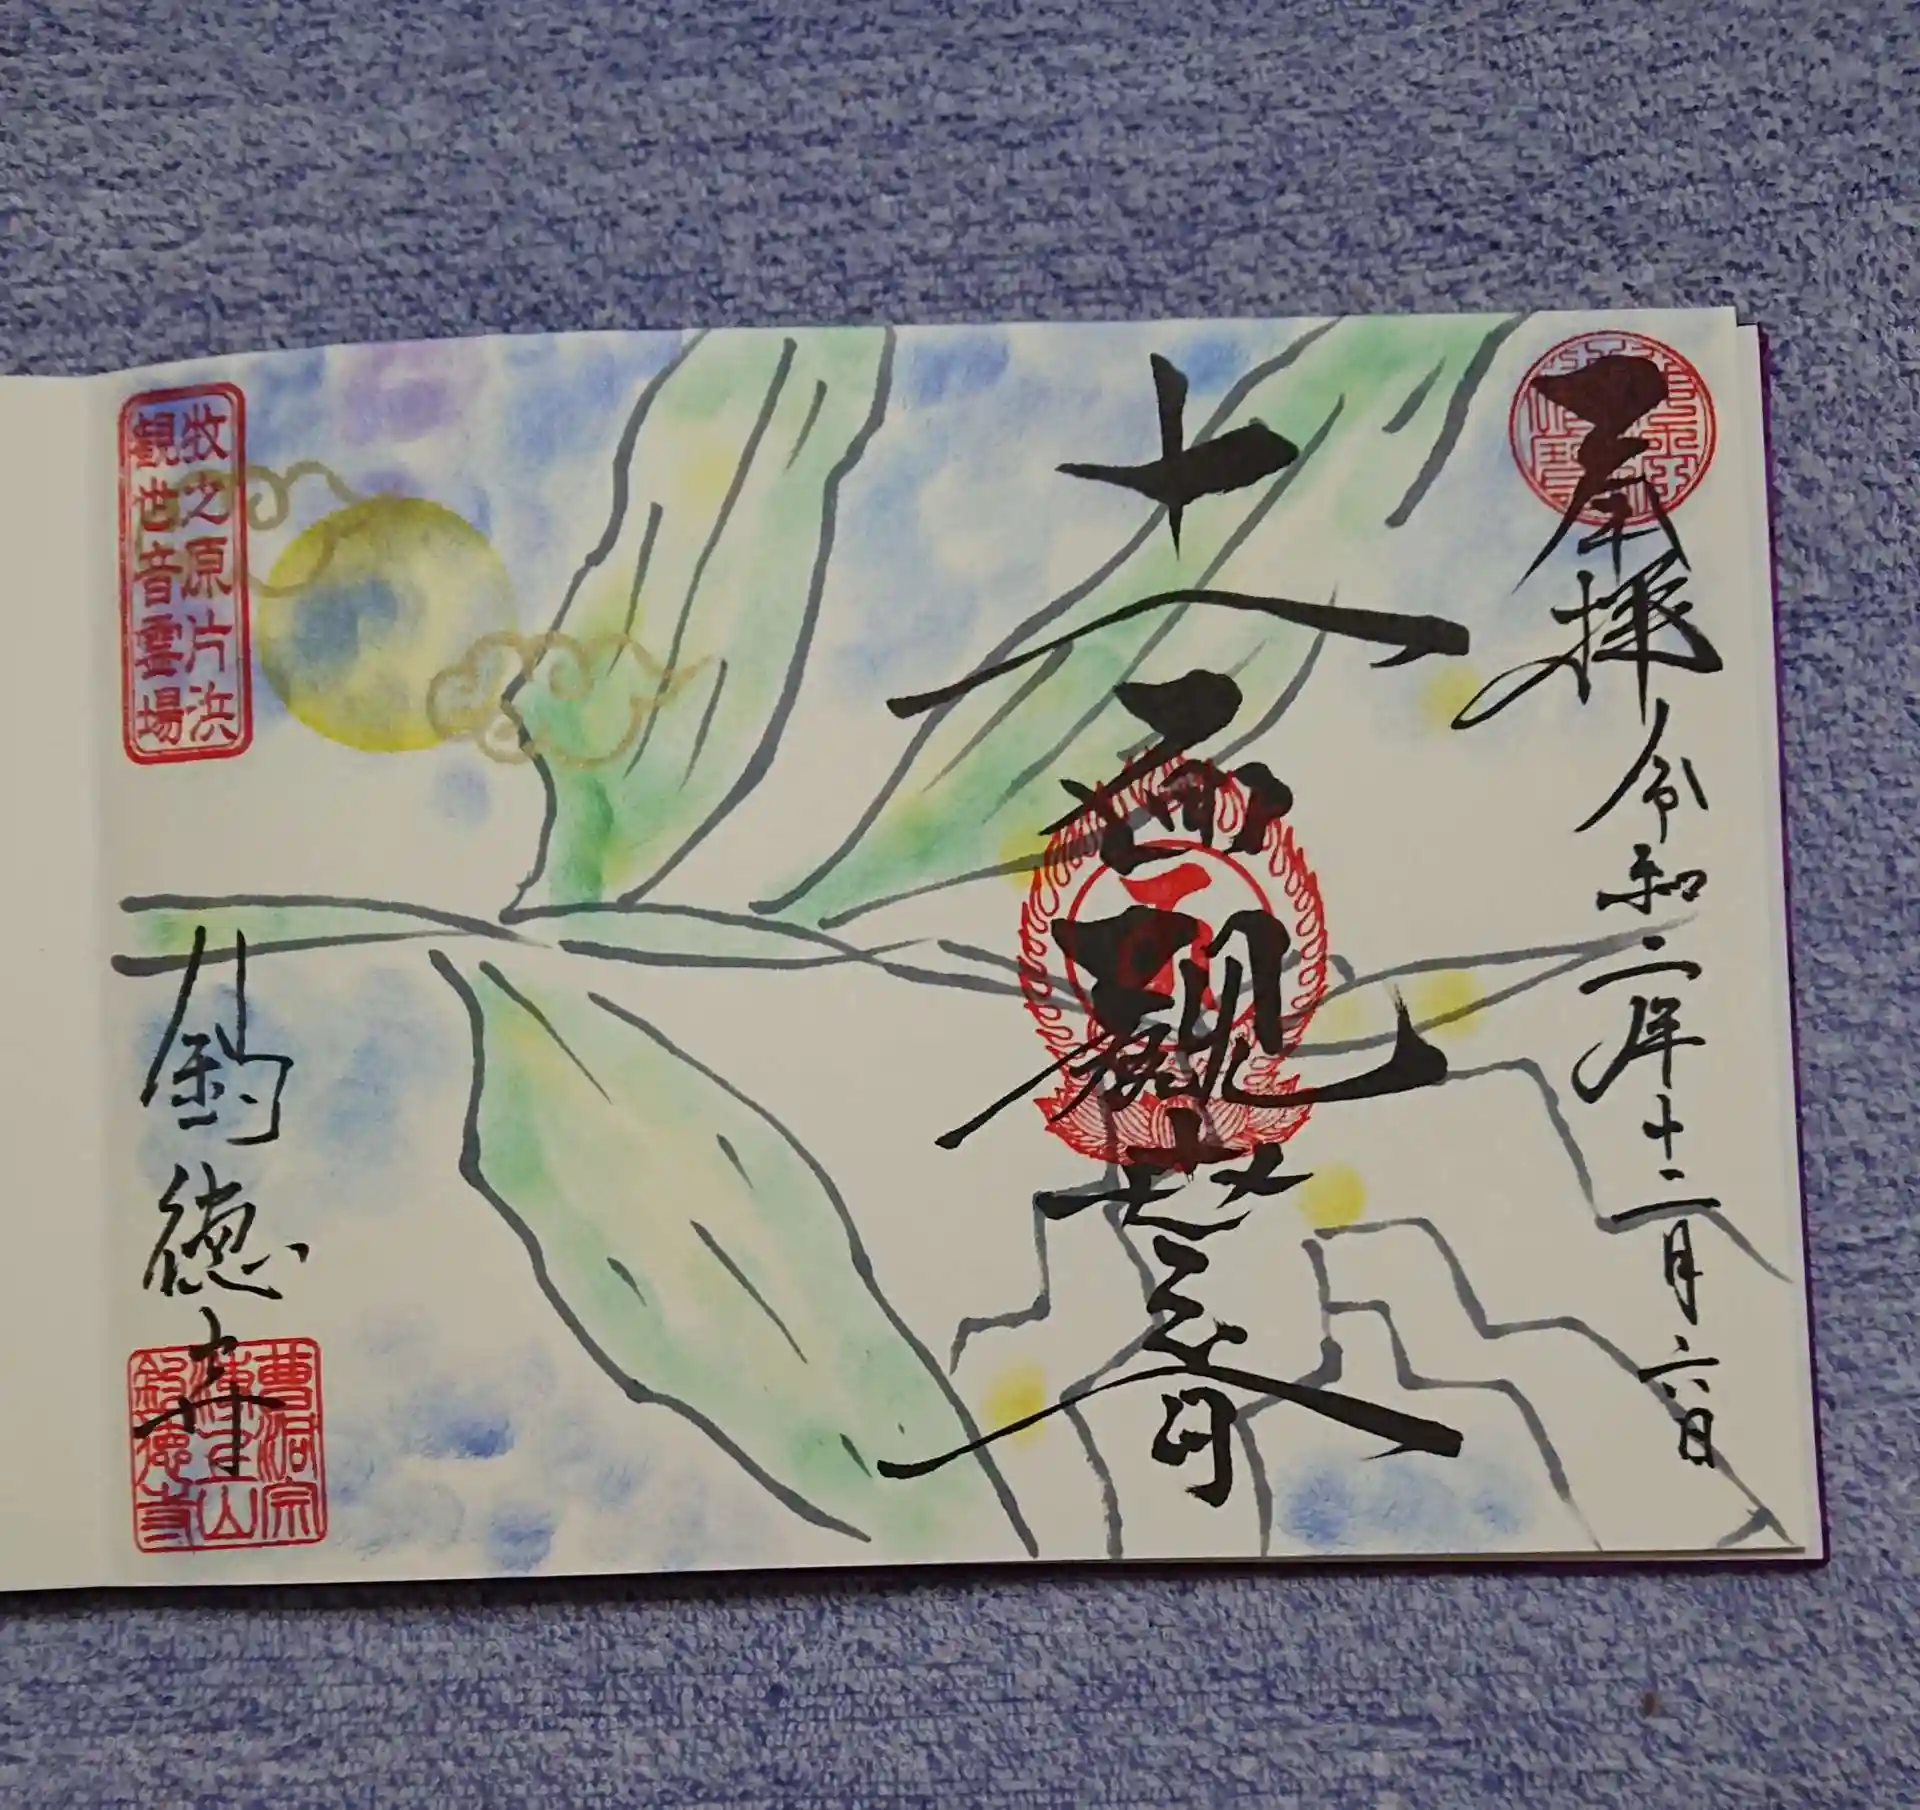 奉拝 令和二年十二月六日
十一面観世音
牧之原片浜
観世音霊場
釣徳寺
曹洞宗
山
釣徳寺